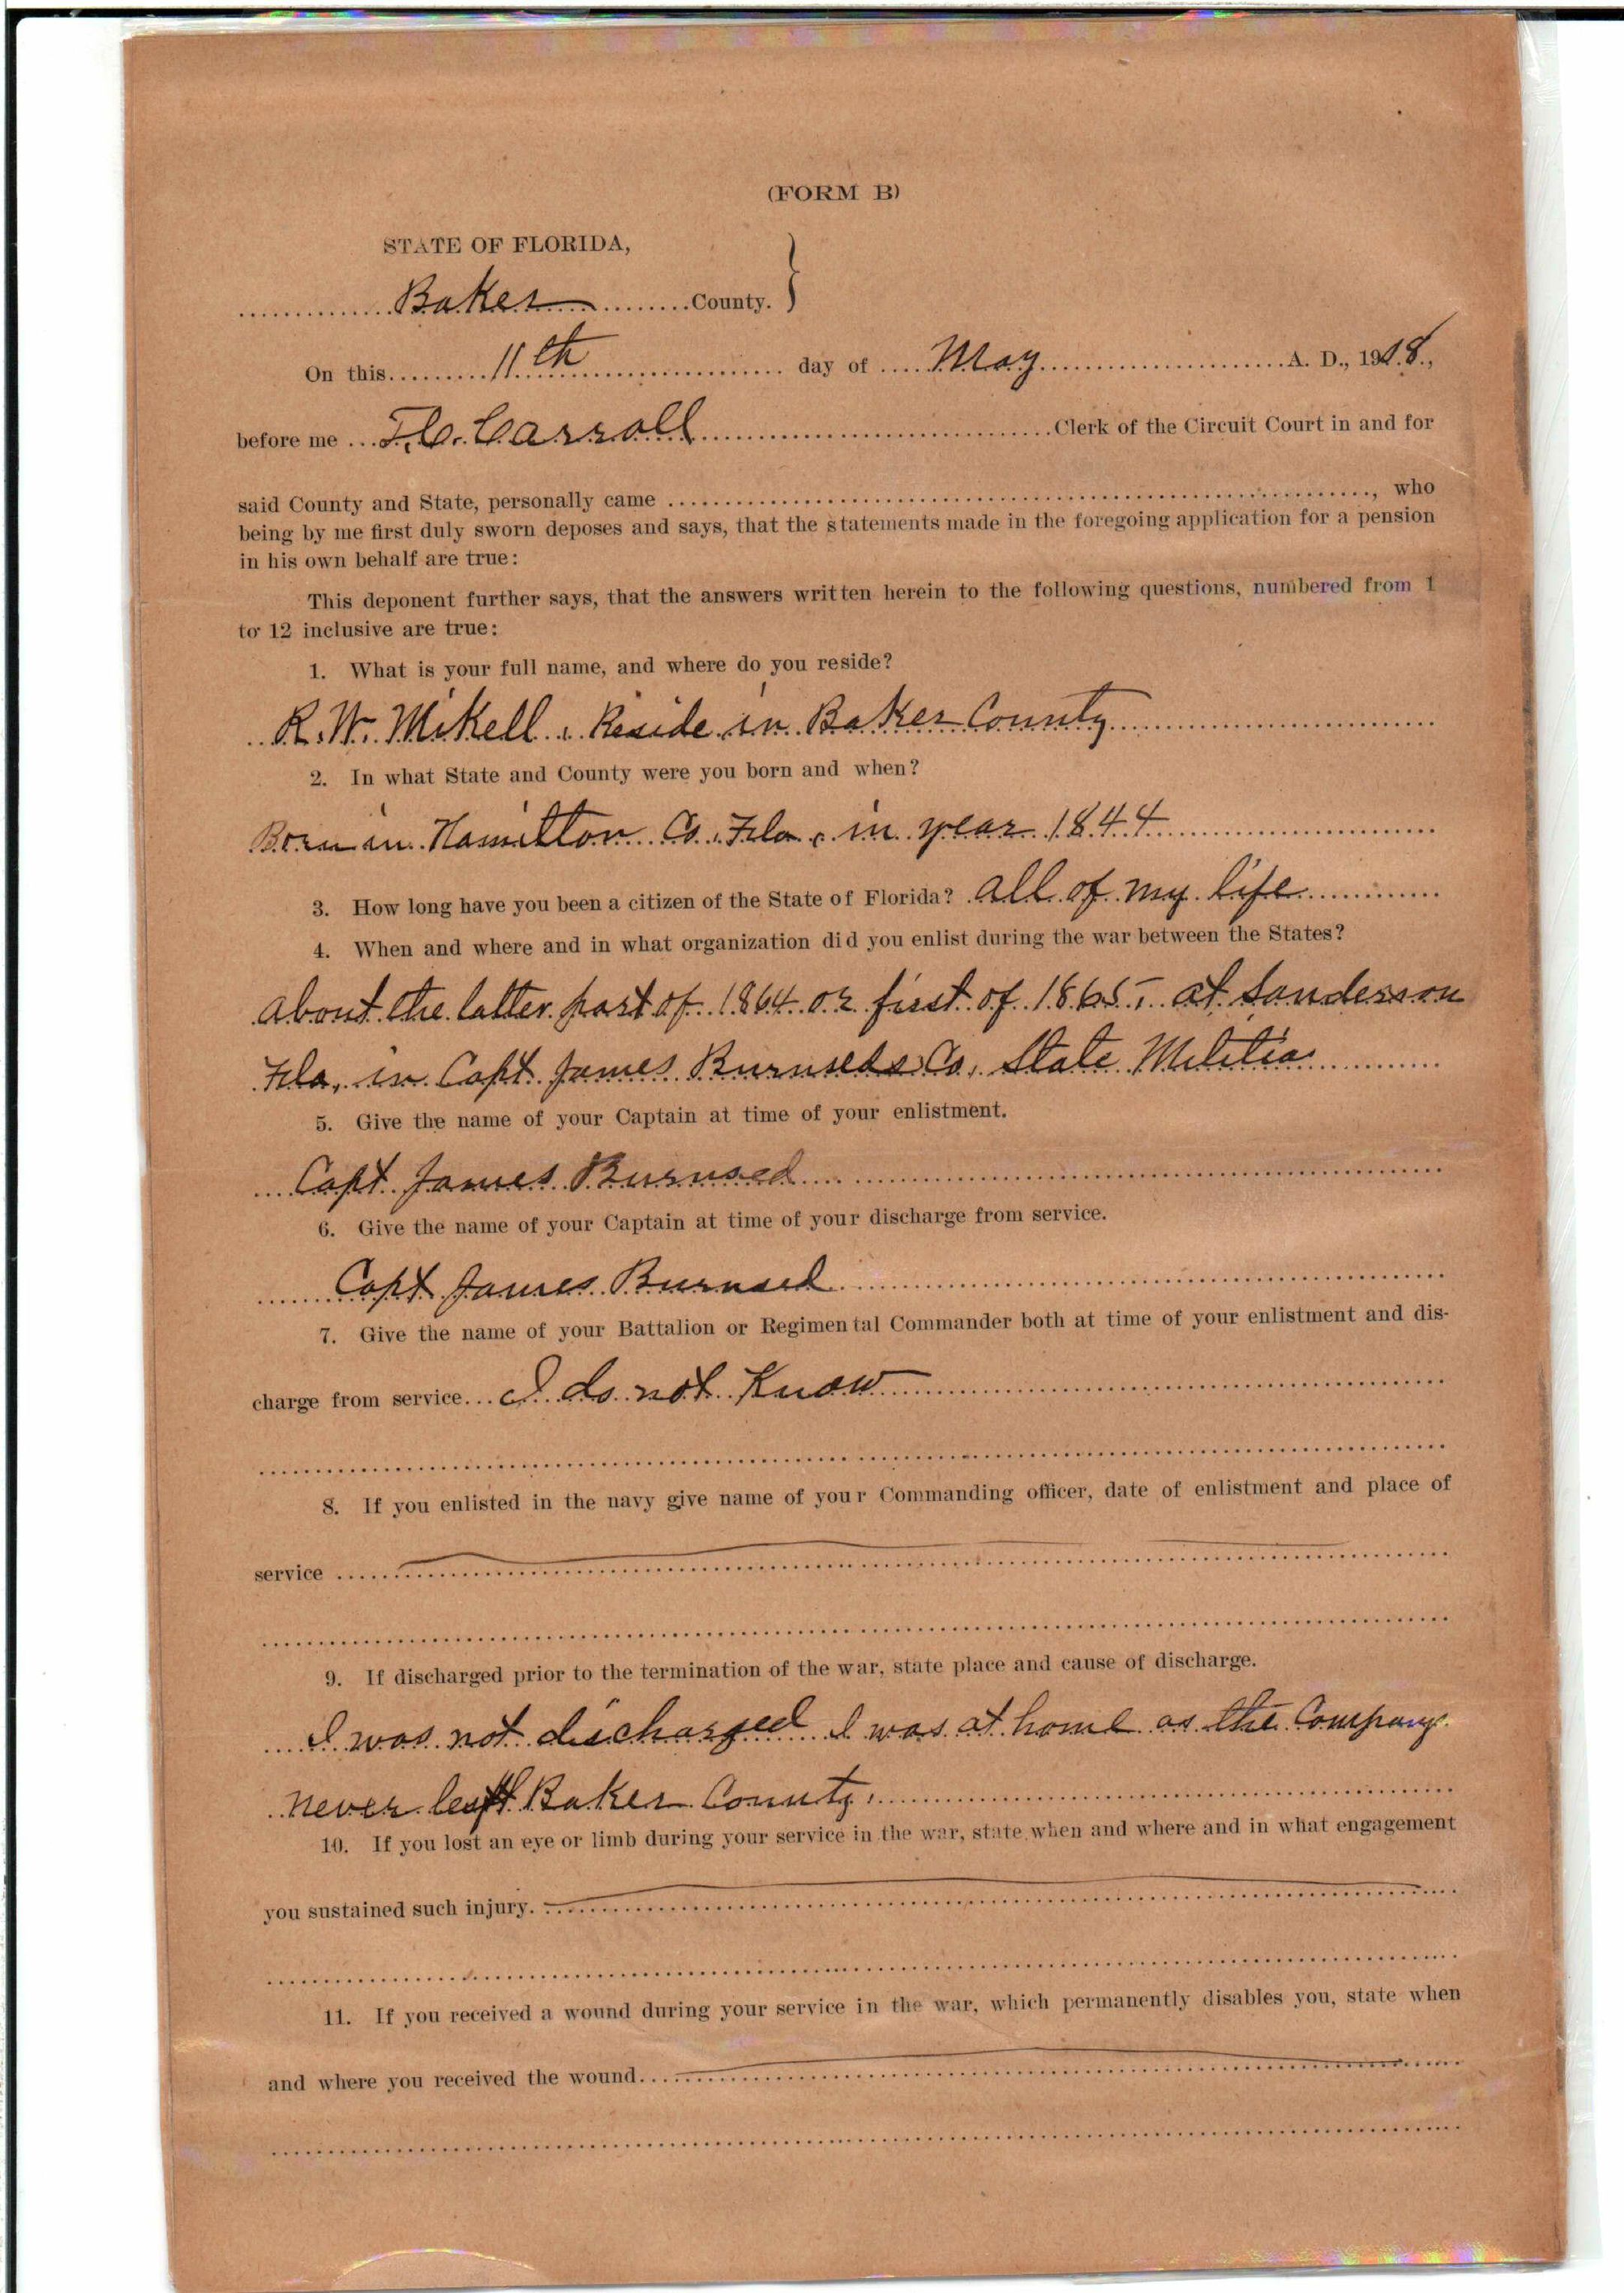 (FORM B)
STATE OF FLORIDA,
Baker County.
On this 11th day of May A. D., 1918,
before me F. C. Carroll Clerk of the Circuit Court in and for
said County and State, personally came , who
being by me first duly sworn deposes and says, that the statements made in the foregoing application for a pension
in his own behalf are true:
This deponent further says, that the answers written herein to the following questions, numbered from 1
to 12 inclusive are true:
1. What is your full name, and where do you reside?
R. W. Mikell, Reside in Baker County
2. In what State and County were you born and when?
Born in Hamilton Co. Fla, in year 1844
3. How long have you been a citizen of the State of Florida? all of my life
4. When and where and in what organization did you enlist during the war between the States?
about the latter part of 1864 or first of 1865- at Sanderson
Fla, in Capt James Burnseds Co, State Militia
5. Give the name of your Captain at time of your enlistment.
Capt James Burnsed
6. Give the name of your Captain at time of your discharge from service.
Capt James Burnsed
7. Give the name of your Battalion or Regimental Commander both at time of your enlistment and dis-
charge from service I do not Know
8. If you enlisted in the navy give name of your Commanding officer, date of enlistment and place of
service
9. If discharged prior to the termination of the war, state place and cause of discharge.
I was not discharged I was at home as the Company
never left Baker County.
10. If you lost an eye or limb during your service in the war, state when and where and in what engagement
you sustained such injury.
11. If you received a wound during your service in the war, which permanently disables you, state when
and where you received the wound